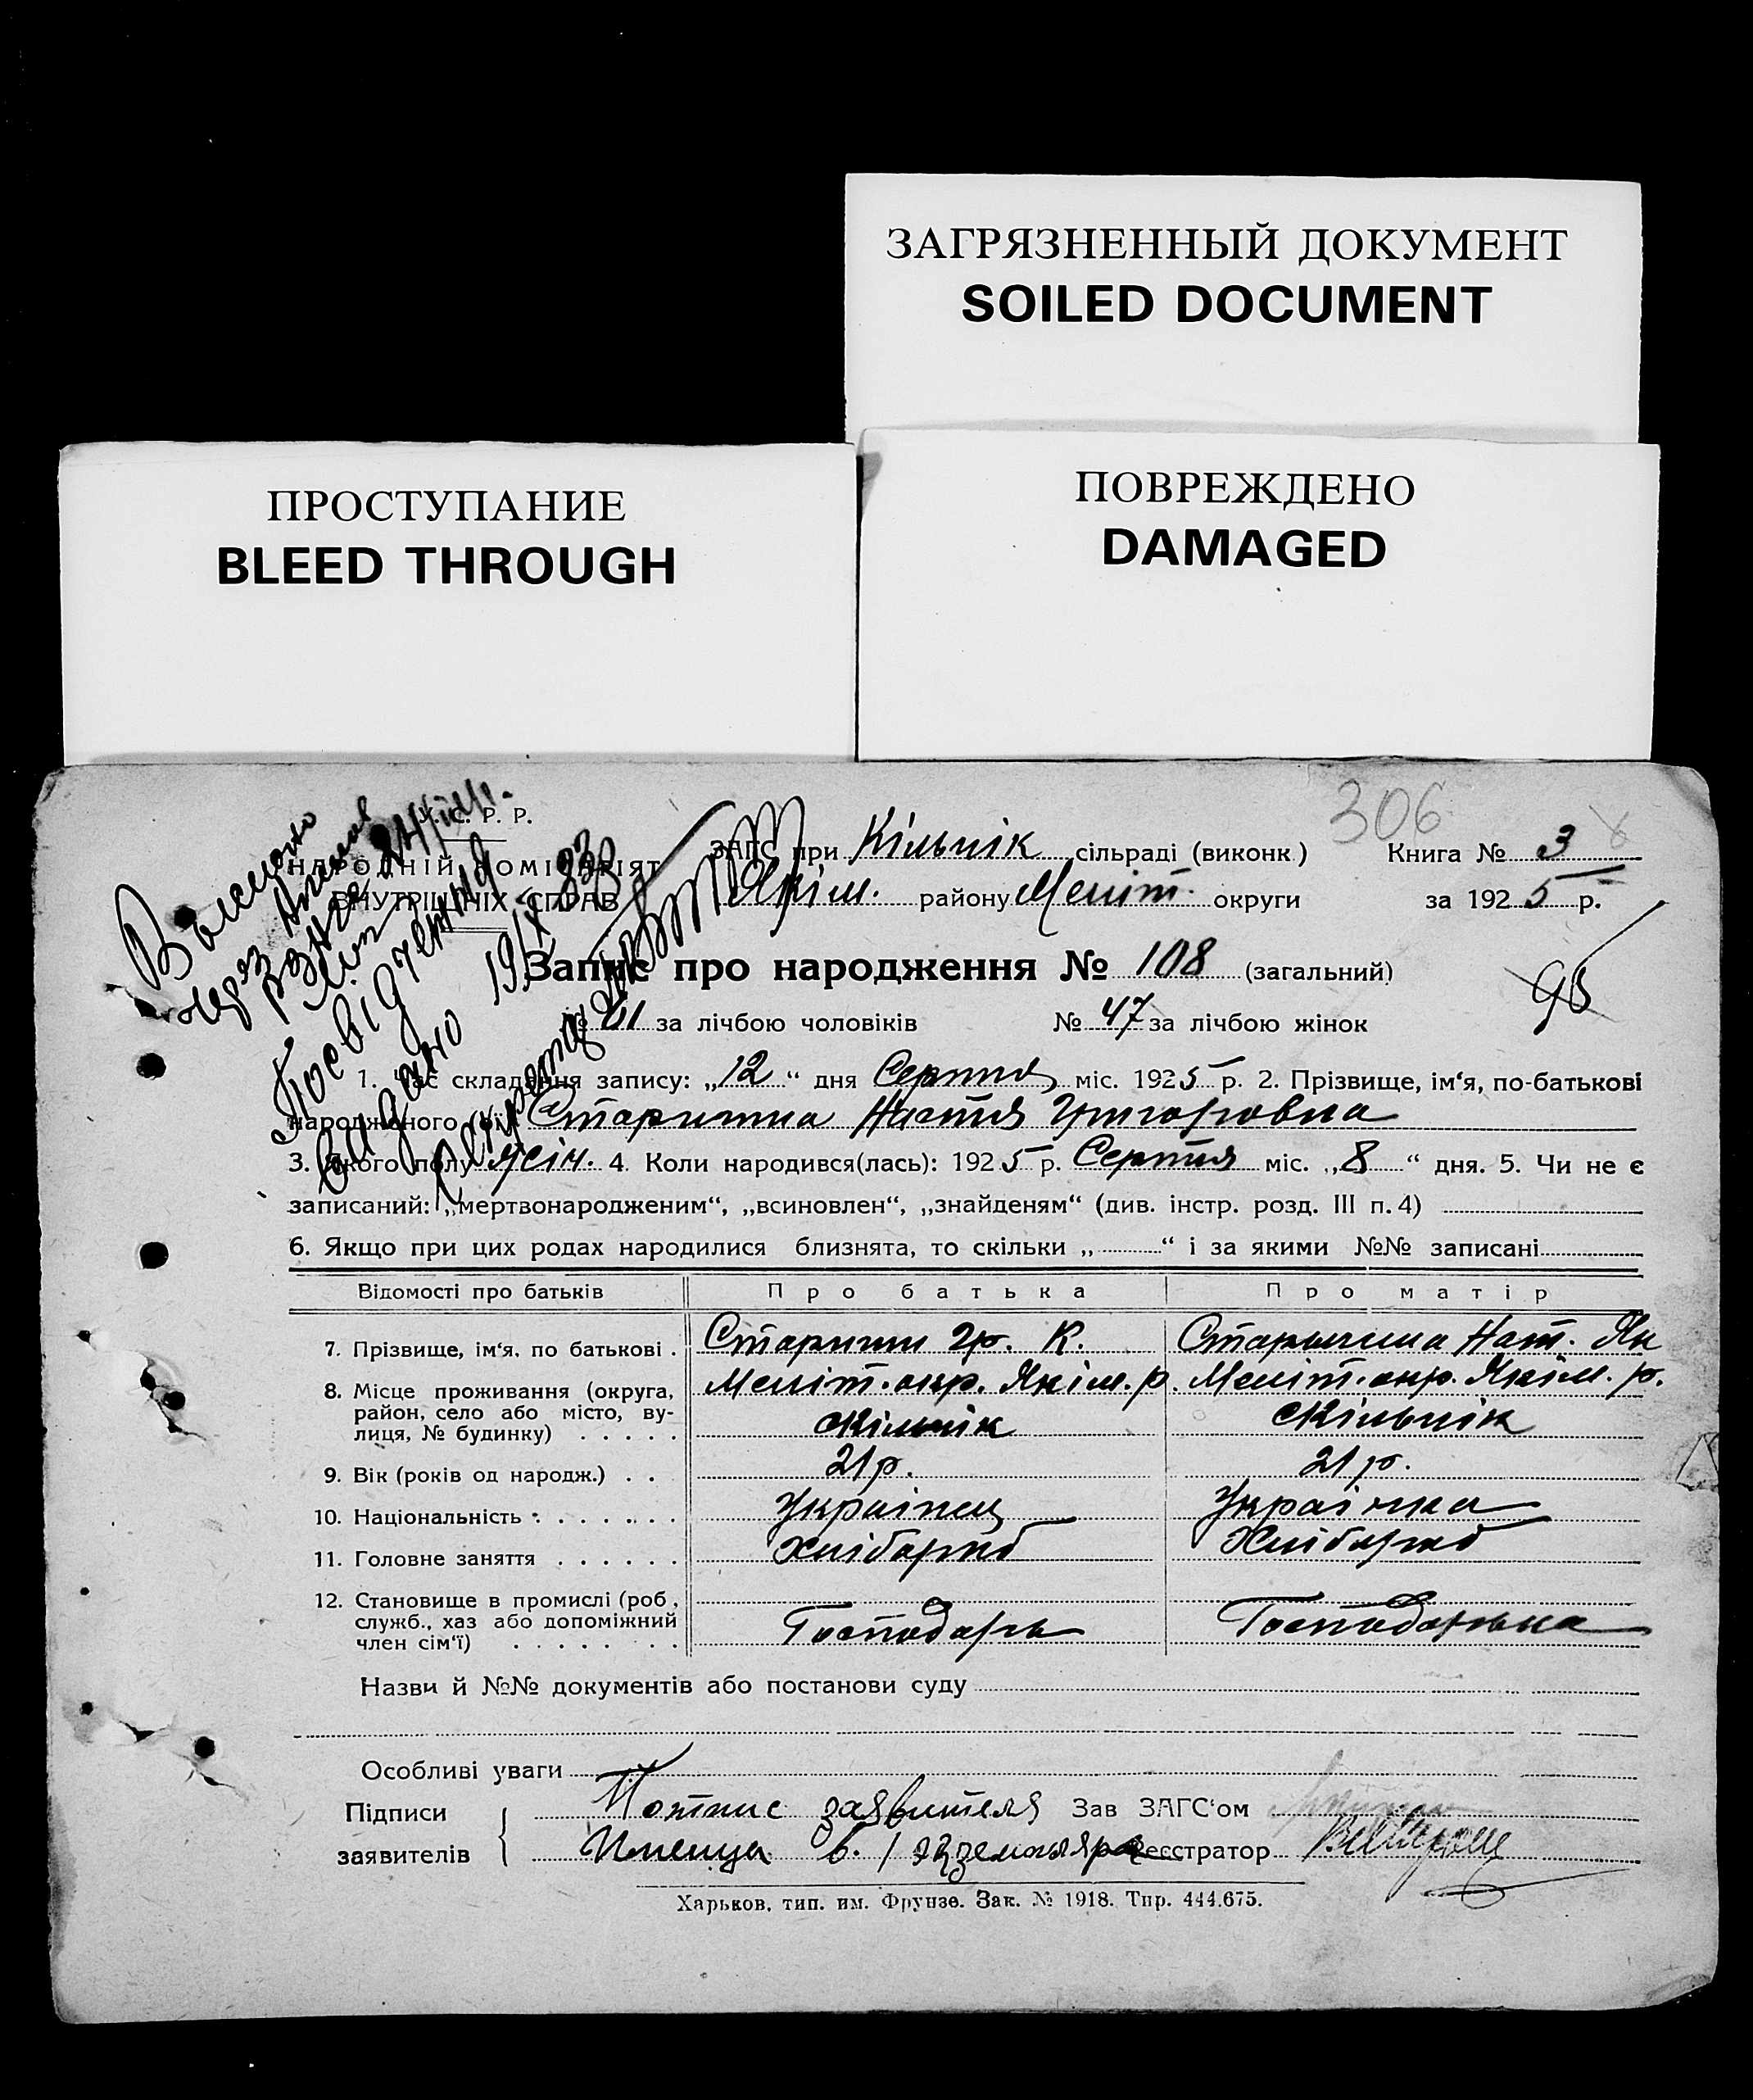 ЗАГРЯЗНЕННЫЙ ДОКУМЕНТ
SOILED DOCUMENT
ПРОСТУПАНИЕ
BLEED THROUGH
ПОВРЕЖДЕНО
DAMAGED
306
У. С. Р. Р.
НАРОДНІЙ КОМІСАРІЯТ
ВНУТРІШНІХ СПРАВ
ЗАГС при Кільпік сільраді (виконк.) Книга № 3
Якім. району Меліт. округи за 1925 р.
Запис про народження № 108 (загальний)
95
№ 61 за лічбою чоловіків № 47 за лічбою жінок
Посвідчення
видано
1. Час складання запису: „12“ дня Серпня міс. 1925 р. 2. Прізвище, ім‘я, по-батькові
народженого (ої) Старитна Настя Григоровна
3. Якого полу жін. 4. Коли народився(лась): 1925 р. Серпня міс. „8“ дня. 5. Чи не є
записаний: „мертвонародженим“, „всиновлен“, „знайденям“ (див. інстр. розд. III п. 4)
6. Якщо при цих родах народилися близнята, то скільки „ “ і за якими №№ записані
Відомості про батьків Про батька Про матір
7. Прізвище, ім‘я, по батькові . Гр. К. Нат. Як
8. Місце проживання (округа, район, село або місто, вулиця, № будинку) . . . . . Меліт. окр. Якім. р. Меліт. окр. Якім. р.
Кільпік Кільпік
9. Вік (років од народж.) . . 21 р. 21 р.
10. Національність . . . . . . . Українец Українка
11. Головне заняття . . . . . . Хлібороб Хлібороб
12. Становище в промислі (роб., служб., хаз або допоміжний член сім‘ї) . . . . . . . . Господарь Господарька
Назви й №№ документів або постанови суду
Особливі уваги
Підписи Потпис заявителя Зав ЗАГС‘ом
заявителів в 1 экземпляре Реєстратор
Харьков, тип. им. Фрунзе. Зак. № 1918. Тир. 444.675.